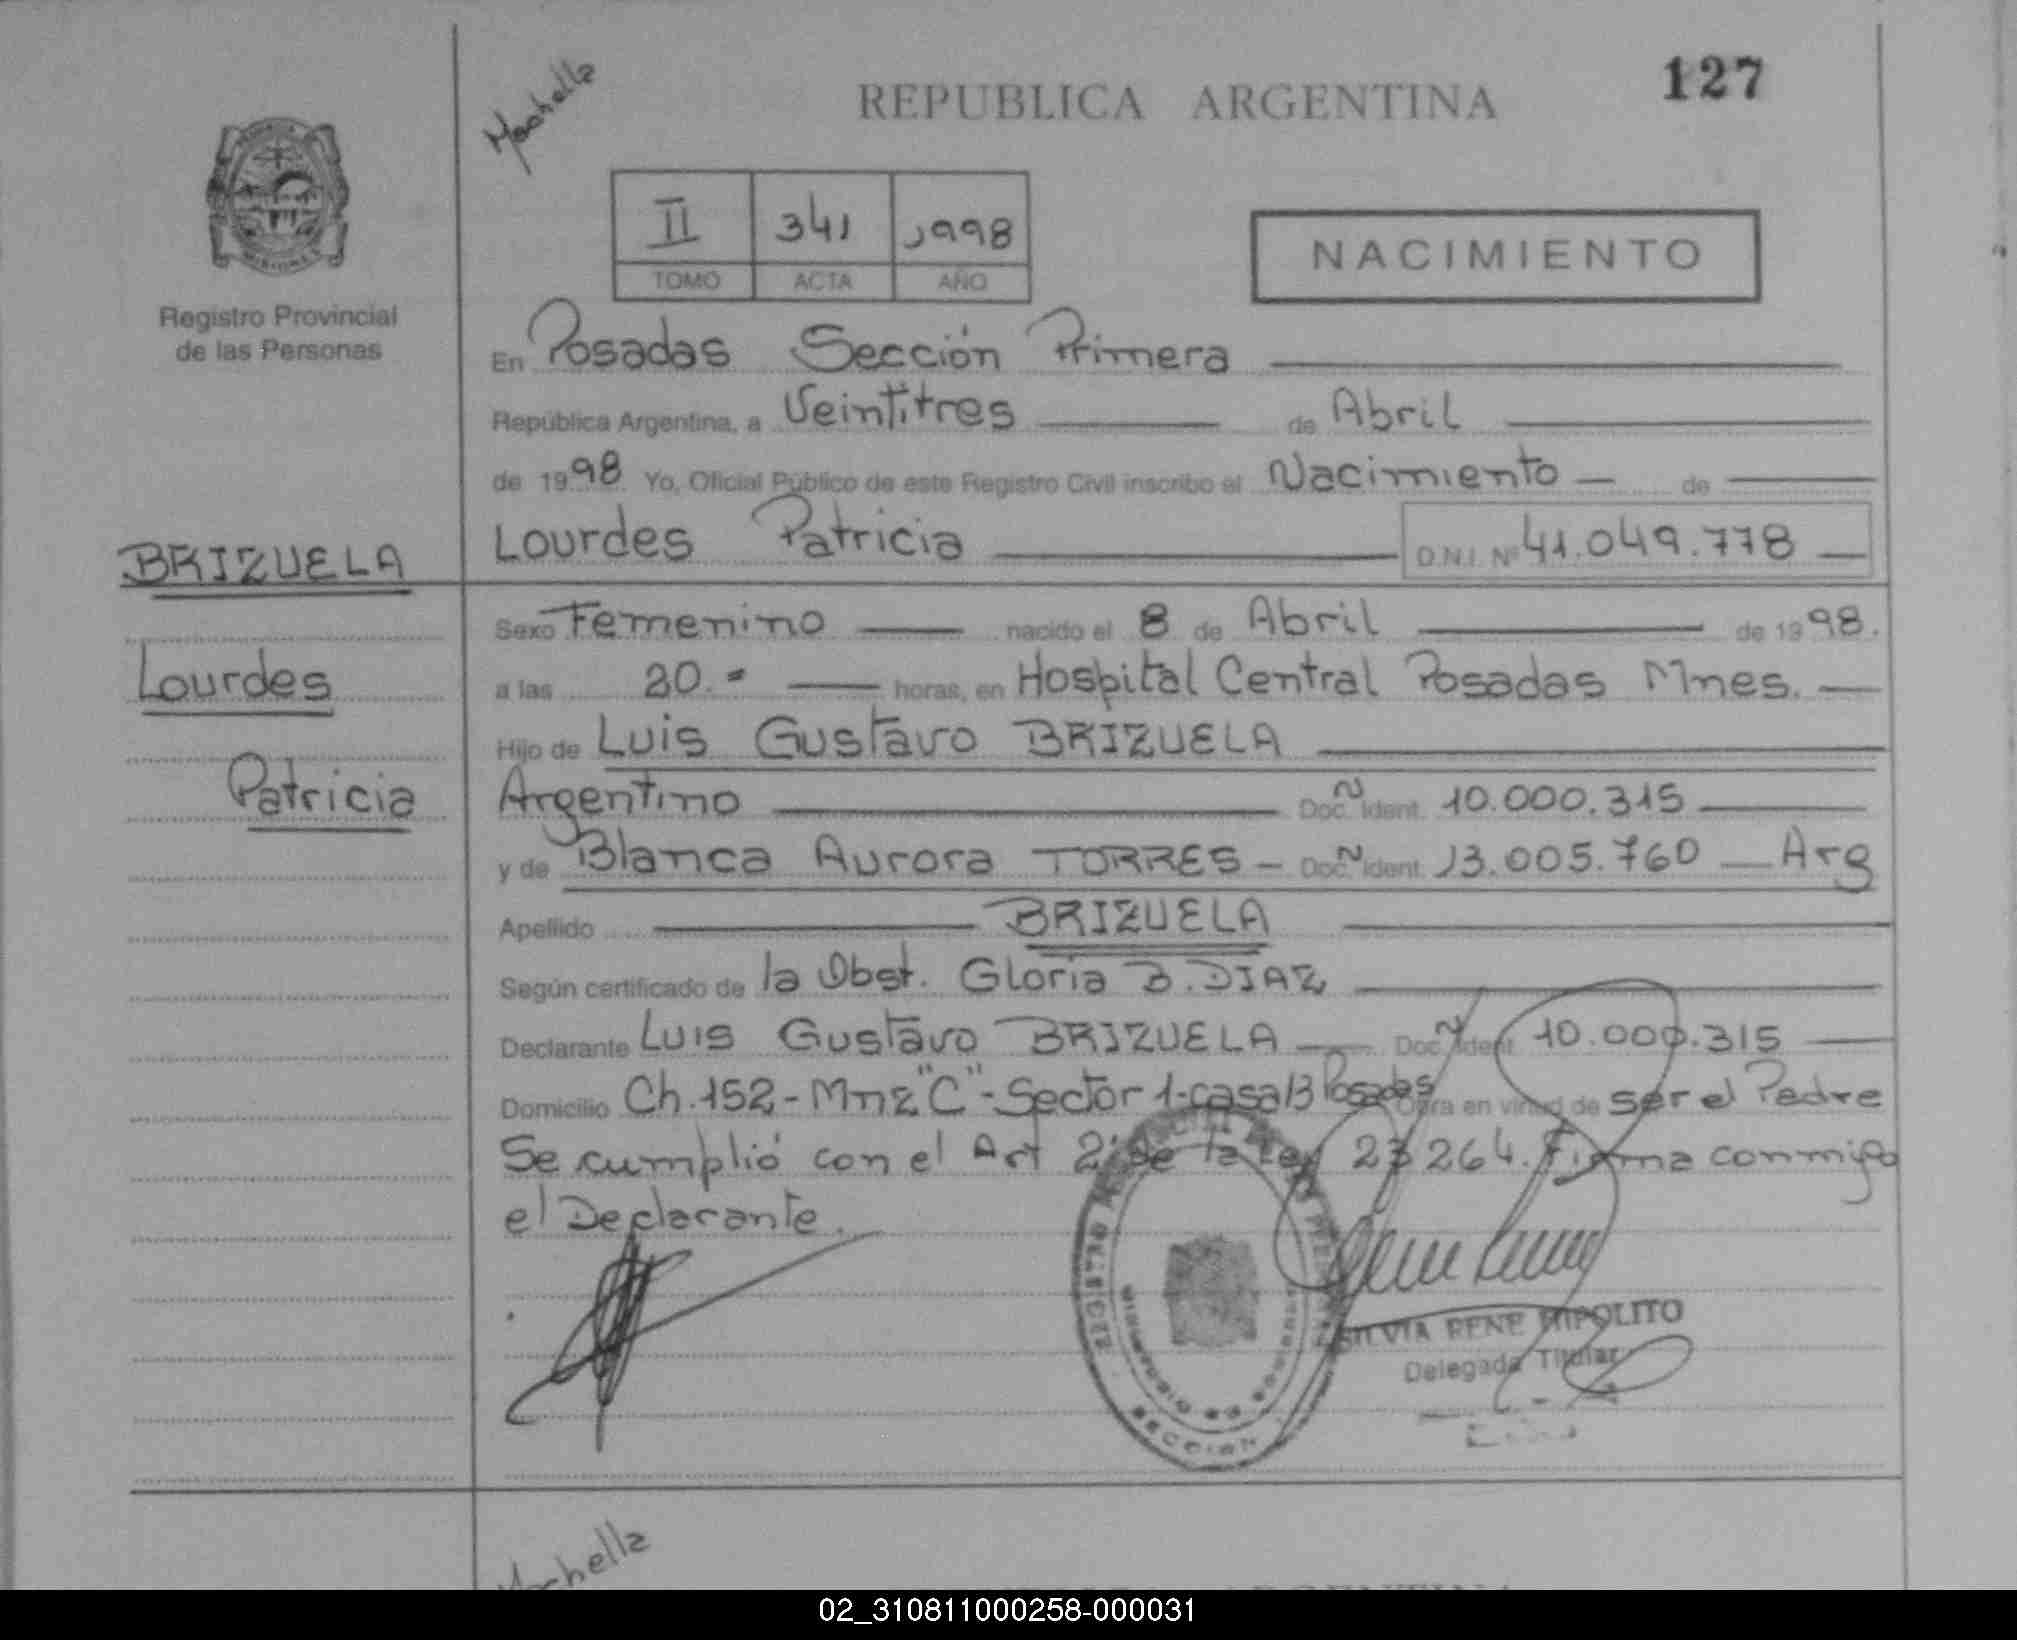 Machella
REPUBLICA ARGENTINA
127
II 341 1998
TOMO ACTA AÑO
NACIMIENTO
MISIONES
Registro Provincial
de las Personas
En Posadas Sección Primera
República Argentina, a Veintitres de Abril
de 1998 Yo, Oficial Público de este Registro Civil inscribo el Nacimiento de
Lourdes Patricia D.N.I. Nº 41.049.778
BRIZUELA
Lourdes
Patricia
Sexo Femenino nacido el 8 de Abril de 1998.
a las 20.= horas, en Hospital Central Posadas Mnes.
Hijo de Luis Gustavo BRIZUELA
Argentino Doc. Ident. 10.000.315
y de Blanca Aurora TORRES - Doc. Ident. 13.005.760 Arg
Apellido BRIZUELA
Según certificado de la Obst. Gloria B. DIAZ
Declarante Luis Gustavo BRIZUELA Doc. Ident. 10.000.315
Domicilio Ch. 152 - Mnz "C" - Sector 1 - casa 13 Posadas Obra en virtud de ser el Padre
Se cumplió con el Art 2º de la Ley 23264. Firma conmigo
el Declarante.
SILVIA RENE HIPOLITO
Delegada Titular
SECCION
Machella
02_310811000258-000031